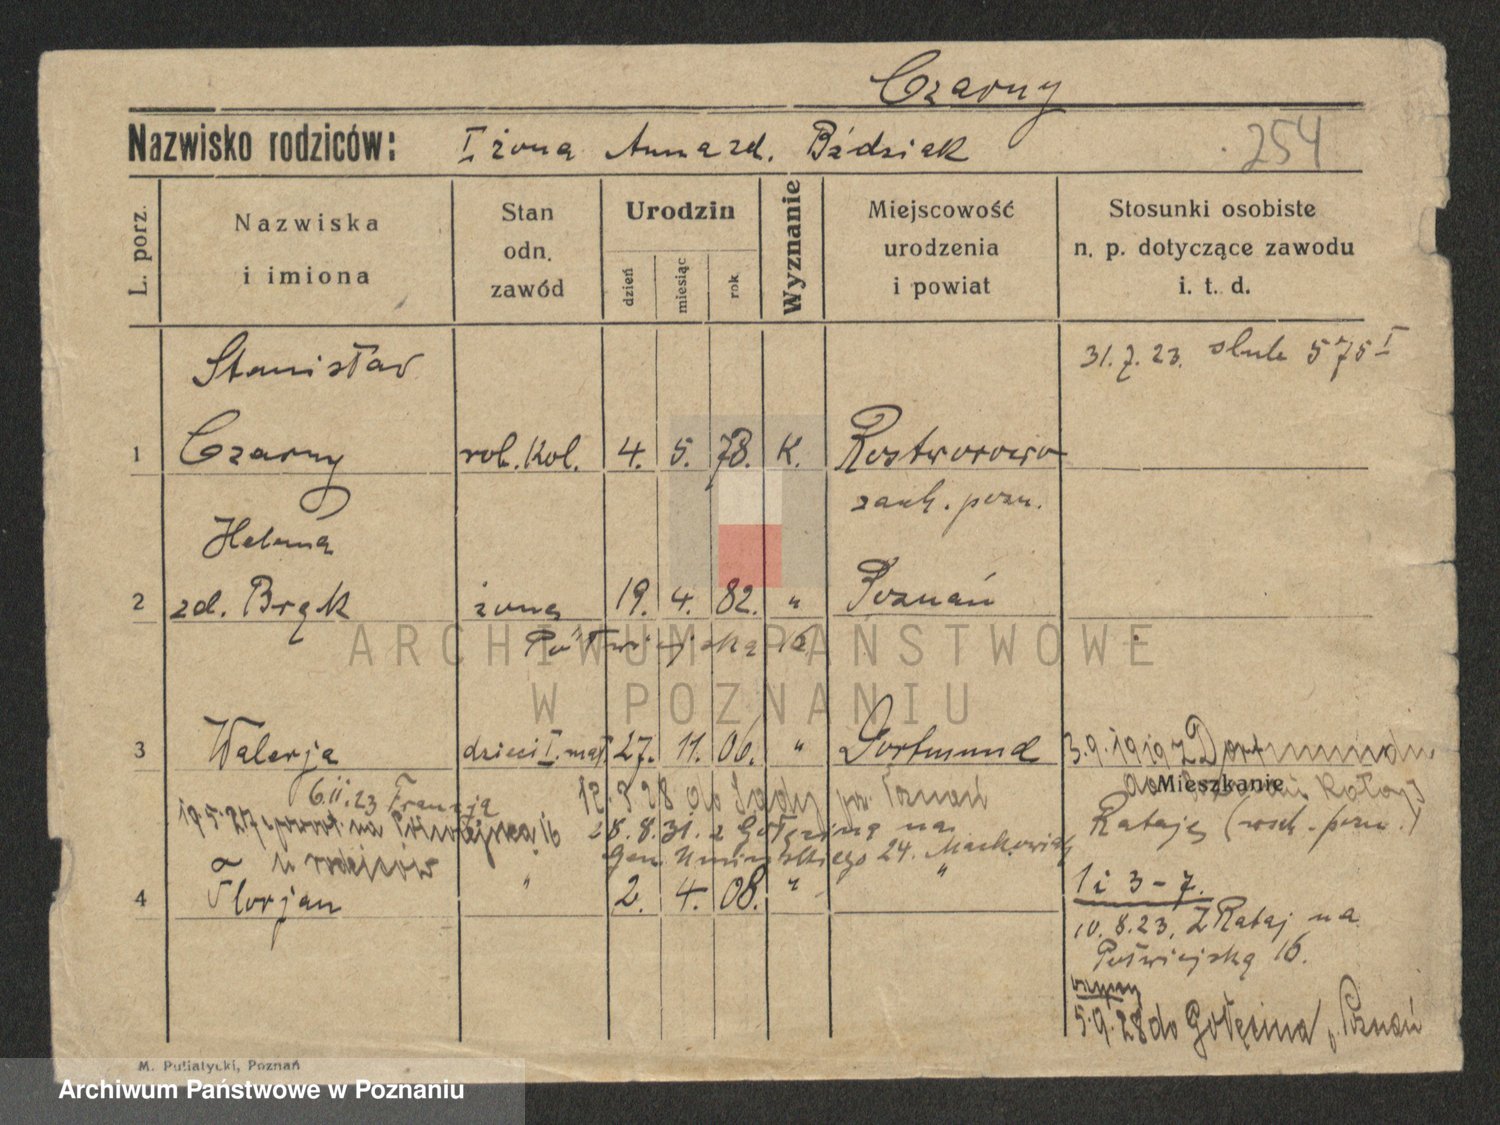 Czarny
Nazwisko rodziców: I żona Anna zd. Bździak 254
L. porz.
Nazwiska i imiona
Stan odn. zawód
Urodzin
dzień miesiąc rok
Wyznanie
Miejscowość urodzenia i powiat
Stosunki osobiste n. p. dotyczące zawodu i. t. d.
Stanisław 31.7.23. 575 I
1 Czarny rob. kol. 4. 5. 78. K. Rostworowo
zach. pozn.
Helena
2 zd. Bręk żona 19. 4. 82. " Poznań
Półwiejska 16
3 Walerja dzieci I. małż. 27. 11. 06. " Dortmund 3.9.1919 z Dortmundu
Mieszkanie
6.II.23 Francja 12.8.28 do poz. Poznań
19.5.27 powr. na Półwiejską 16 28.8.31. z Gołęcina na Rataje (wsch. pozn.)
u rodziców Gen. Umińskiego 24.
4 Florjan " 2. 4. 08. " " 1 i 3 – 7.
10.8.23. Z Rataj na
Półwiejską 16.
5.9.28 do Gołęcina p. Poznań
M. Putiatycki, Poznań
ARCHIWUM PAŃSTWOWE
W POZNANIU
Archiwum Państwowe w Poznaniu